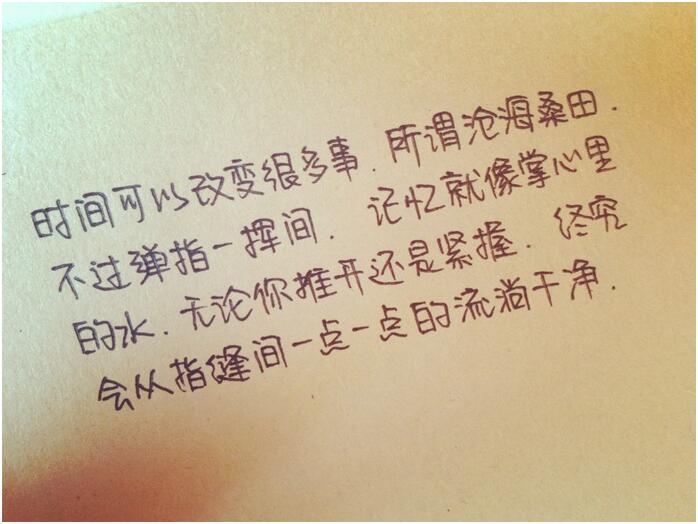 时间可以改变很多事.所谓沧海桑田.
不过弹指一挥间.记忆就像掌心里
的水.无论你推开还是紧握.终究
会从指缝间一点一点的流淌干净.